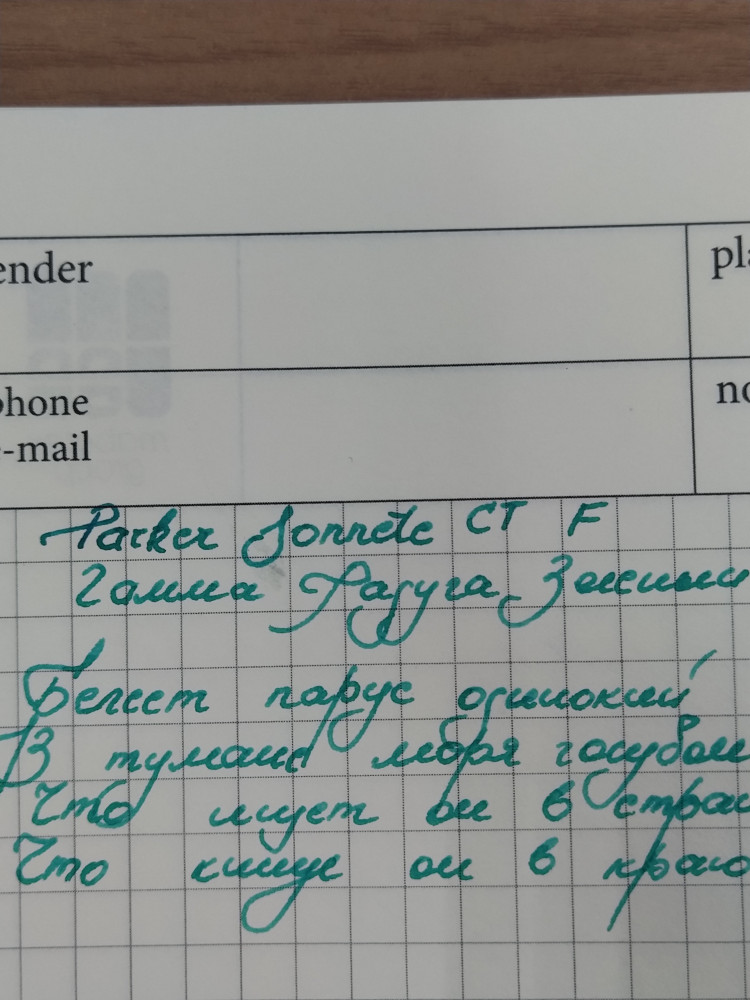 ender
pla
phone
no
-mail
Parker Sonnete CT F
Гамма Радуга Зелены
Белеет парус одинокий
В тумане моря голубом
Что ищет он в стран
Что кинул он в краю